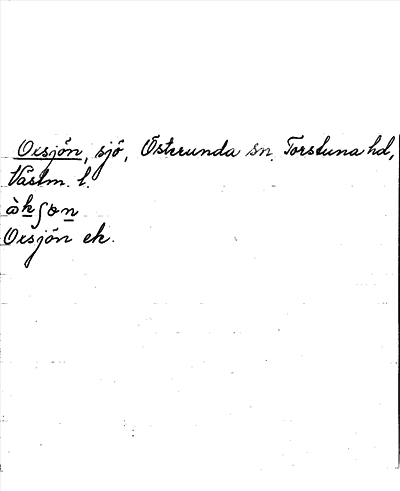 Oxsjön, sjö, Österunda sn. Torstuna hd,
Västm. l.
òkʃɷn
Oxsjön ek.